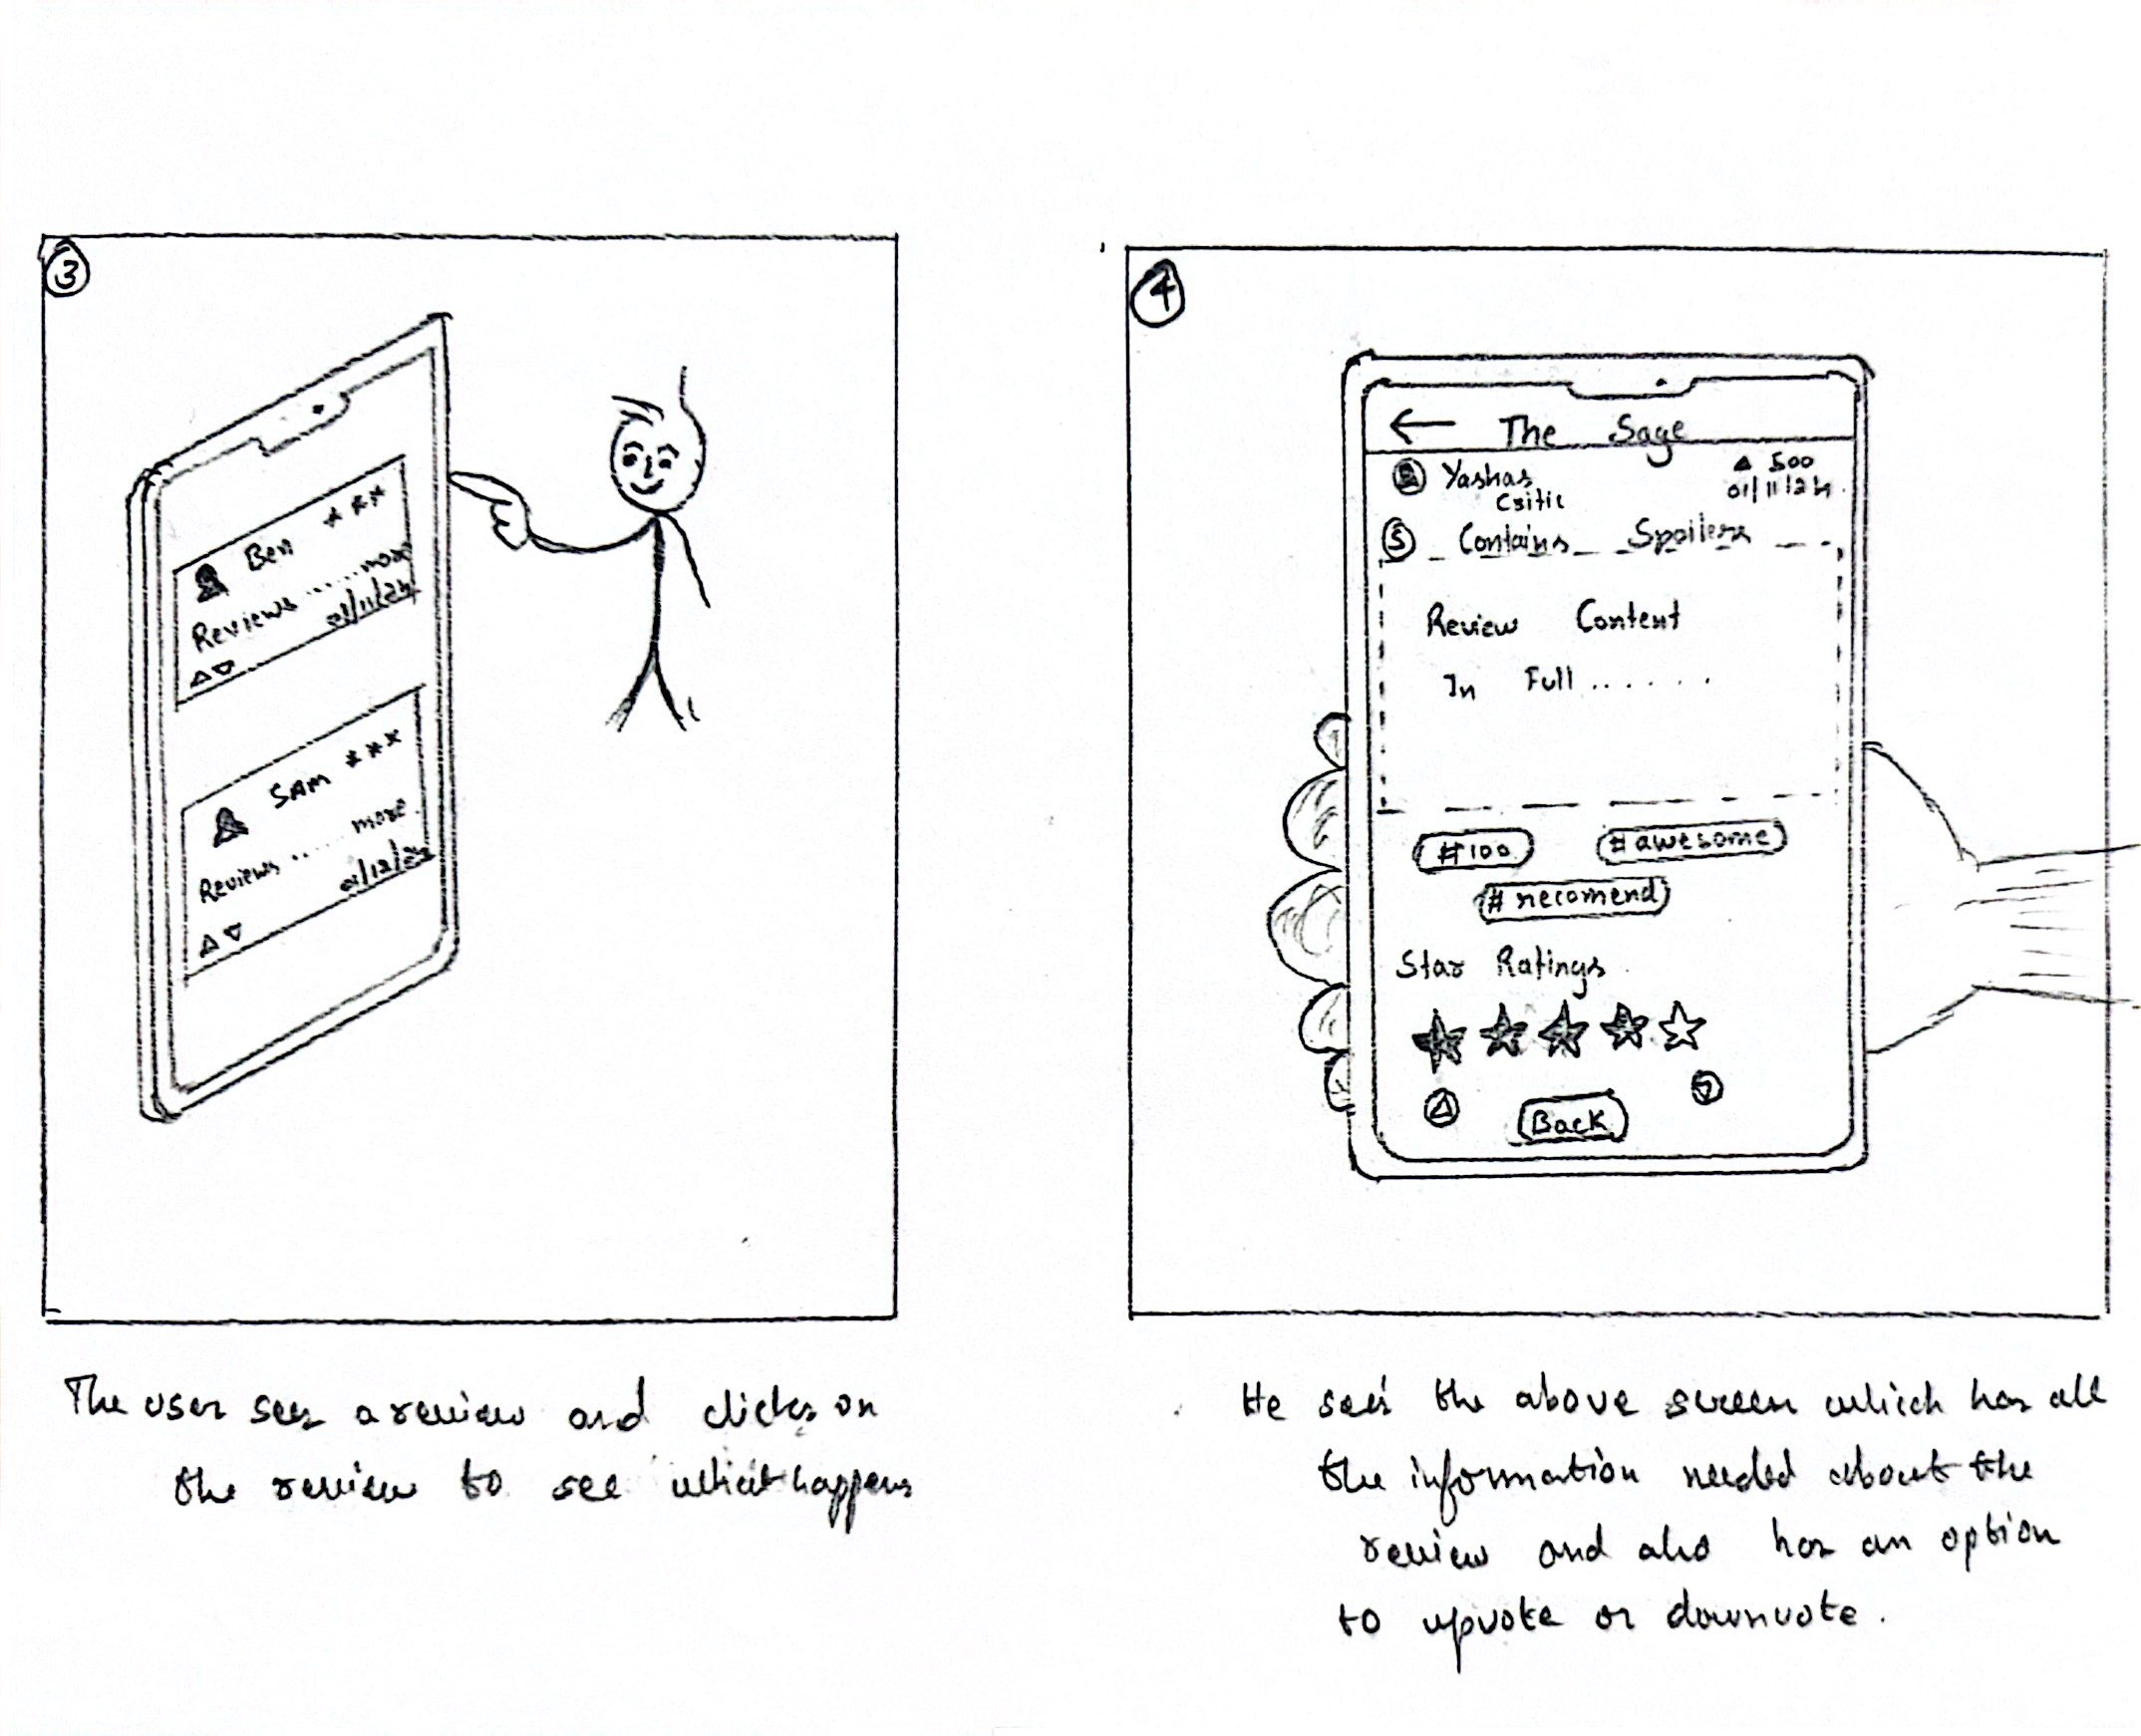 3
Ben ***
Reviews ..... more
01/11/24
SAM ***
more
Reviews ....
01/12/24
The user sees a review and clicks on
the review to see what happens
4
← The Sage
Yashas ▲ 500
Critic 01/11/24
S Contains Spoilers
Review Content
In Full ......
#100 #awesome
#recomend
Star Ratings
Back
He sees the above screen which has all
the information needed about the
review and also has an option
to upvote or downvote.